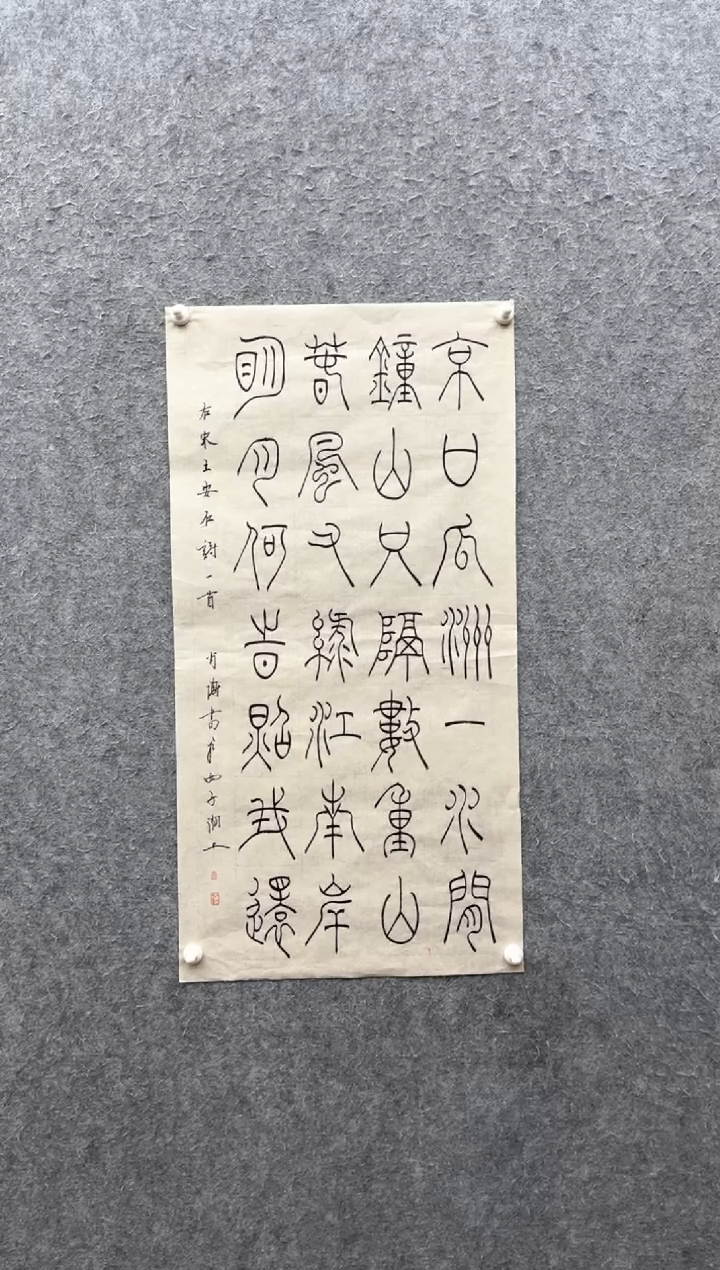 京口瓜洲一水間
鐘山只隔數重山
春風又綠江南岸
明月何時照我還
右宋王安石詩一首
書於西子湖上